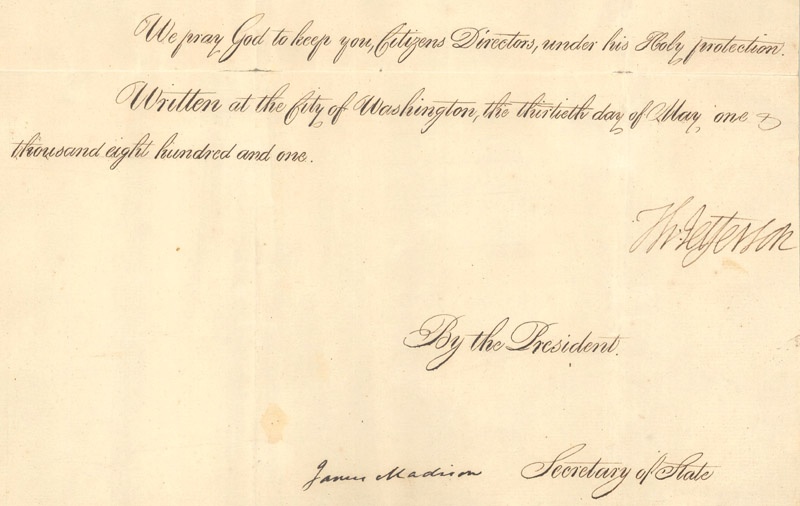 We pray God to keep you, Citizens Directors, under his Holy protection.
Written at the City of Washington, the thirtieth day of May one
thousand eight hundred and one.
Th: Jefferson
By the President.
James Madison Secretary of State